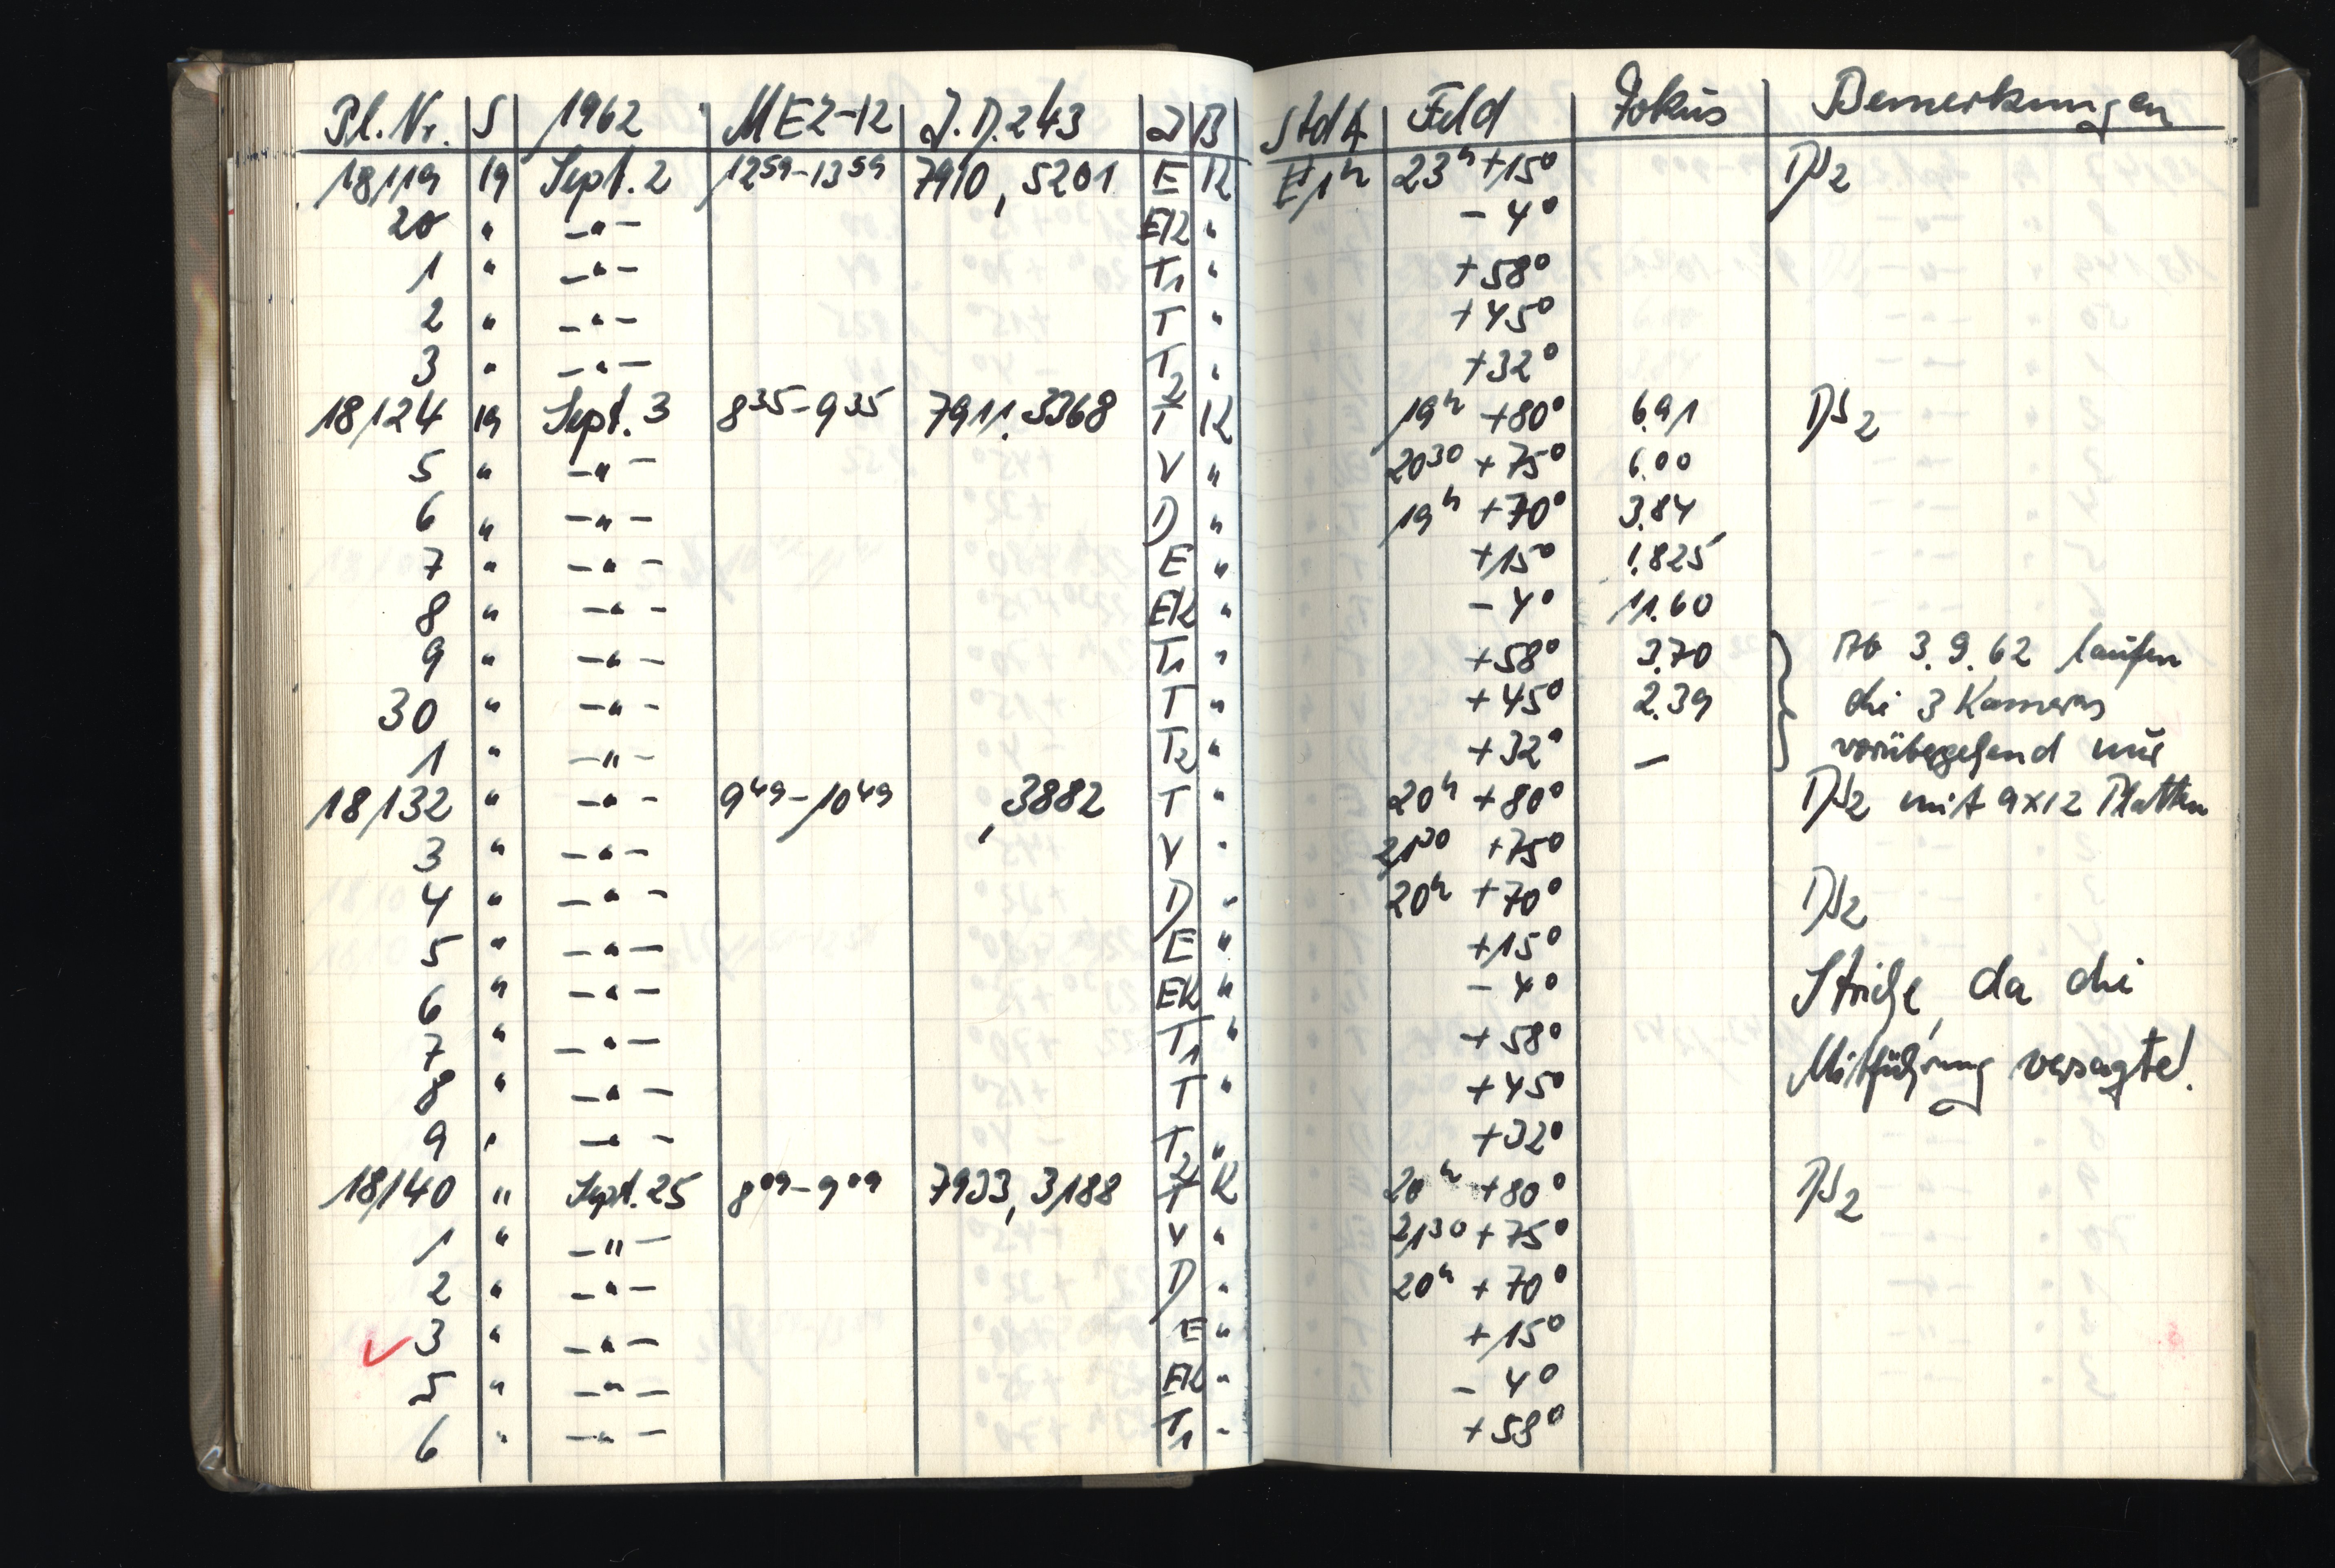 Pl.Nr. S 1962 MEZ-12 J.D.243 J B StdA Feld Fokus Bemerkungen
18119 19 Sept. 2 12⁵⁹-13⁵⁹ 7910,5201 E K E1ʰ 23ʰ +15° DS2
20 " -"- EK " - 4°
1 " -"- T1 " +58°
2 " -"- T " +45°
3 " -"- T2 " +32°
18124 19 Sept. 3 8³⁵-9³⁵ 7911.3368 T K 19ʰ +80° 6.91 DS2
5 " -"- V " 20³⁰ +75° 6.00
6 " -"- D " 19ʰ +70° 3.84
7 " -"- E " +15° 1.825
8 " -"- EK " - 4° 11.60
9 " -"- T1 " +58° 3.70 Ab 3.9.62 laufen
30 " -"- T " +45° 2.39 die 3 Kameras
1 " -"- T2 " +32° — vorübergehend nur
18132 " -"- 9⁴⁹-10⁴⁹ ,3882 T " 20ʰ +80° DS2 mit 9x12 Platten
3 " -"- V " 21³⁰ +75°
4 " -"- D " 20ʰ +70° DS2
5 " -"- E " +15°
6 " -"- EK " - 4° Striche, da die
7 " -"- T1 " +58° Mitführung versagte!
8 " -"- T " +45°
9 " -"- T2 " +32°
18140 " Sept. 25 8⁰⁹-9⁰⁹ 7933,3188 T K 20ʰ +80° DS2
1 " -"- V " 21³⁰ +75°
2 " -"- D " 20ʰ +70°
✓ 3 " -"- E " +15°
5 " -"- EK " - 4°
6 " -"- T1 " +58°